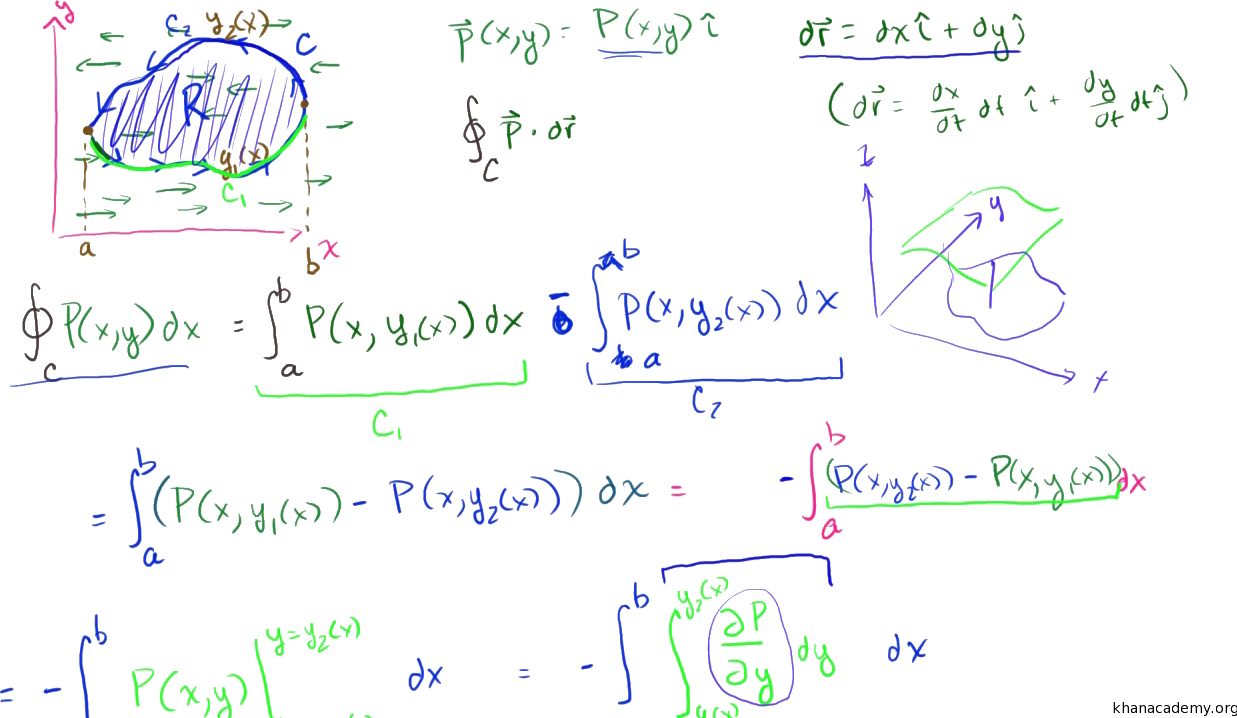 y
C₂ y₂(x)
C
R
y₁(x)
C₁
a
b x
P⃗(x,y) = P(x,y) î
∮_C P⃗ · dr⃗
dr⃗ = dx î + dy ĵ
(dr⃗ = dx/dt dt î + dy/dt dt ĵ)
z
y
x
∮_C P(x,y) dx = ∫_a^b P(x, y₁(x)) dx - ∫_a^b P(x, y₂(x)) dx
C₁
C₂
= ∫_a^b (P(x, y₁(x)) - P(x, y₂(x))) dx = - ∫_a^b (P(x, y₂(x)) - P(x, y₁(x))) dx
= - ∫^b P(x,y) |^{y = y₂(x)} dx = - ∫^b ∫^{y₂(x)} ∂P/∂y dy dx
khanacademy.org